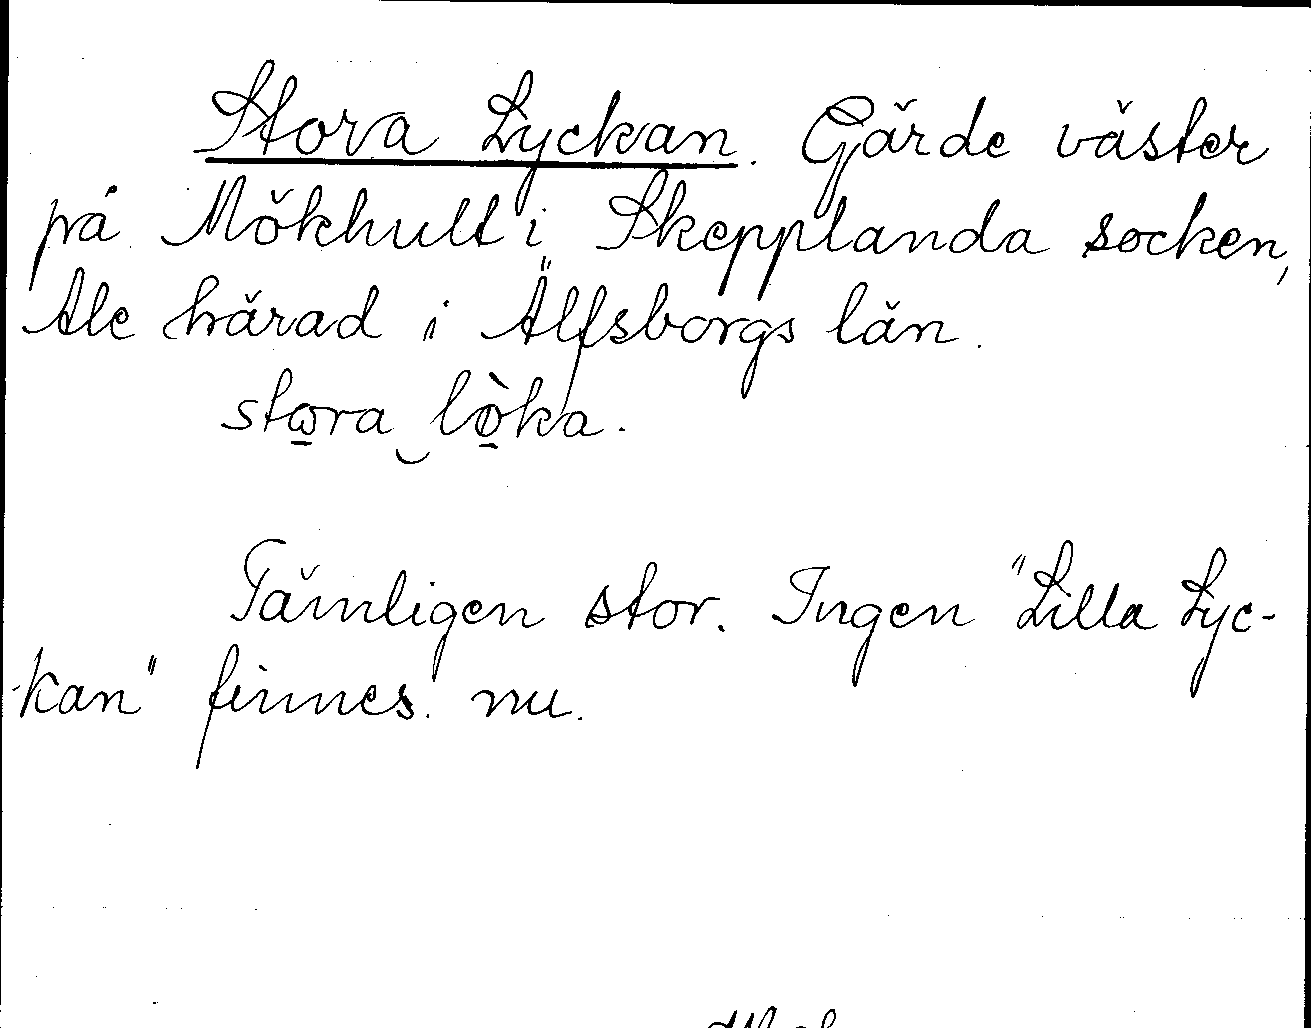 Stora Lyckan. Gärde väster
på Mökhult i Skepplanda socken,
Ale härad i Älfsborgs län.
stωra lø̀ka.
Tämligen stor. Ingen "Lilla Lyc-
-kan" finnes nu.